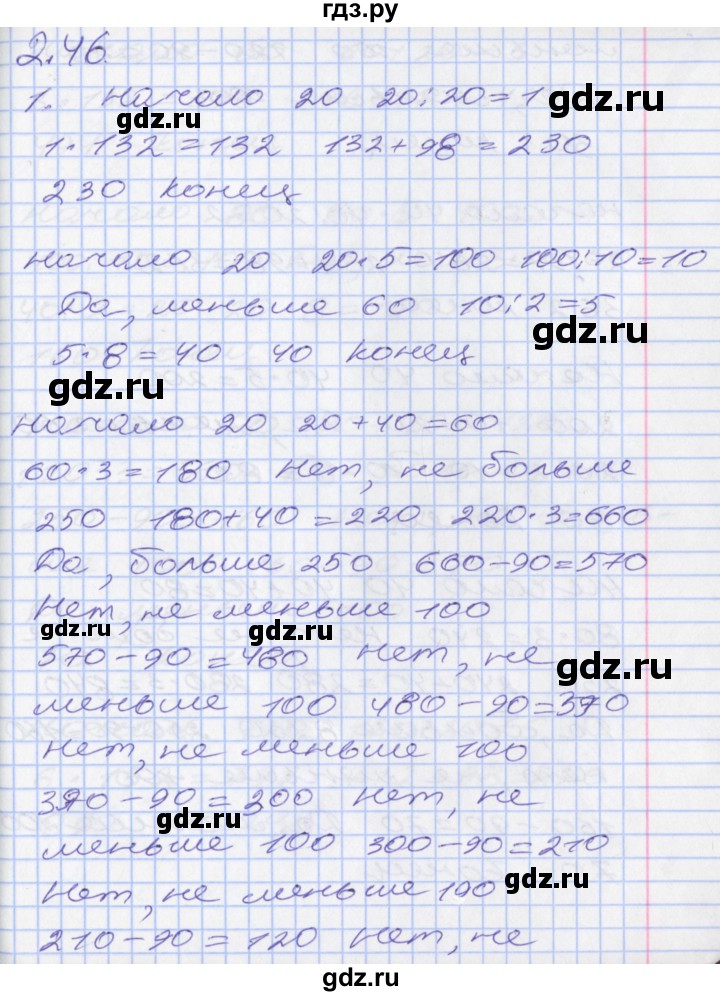 гдз.ру
2.46
1. Начало 20 20:20=1
gdz.ru
gdz.ru
1·132=132 132+98=230
230 конец
начало 20 20·5=100 100:10=10
Да, меньше 60 10:2=5
gdz.ru
5·8=40 40 конец
gdz.ru
начало 20 20+40=60
60·3=180 Нет, не больше
250 180+40=220 220·3=660
Да, больше 250 660-90=570
Нет, не меньше 100
gdz.ru
gdz.ru
570-90=480 Нет, не
gdz.ru
меньше 100 480-90=390
Нет, не меньше 100
390-90=300 Нет, не
gdz.ru
меньше 100 300-90=210
Нет, не меньше 100
gdz.ru
210-90=120 Нет, не
gdz.ru